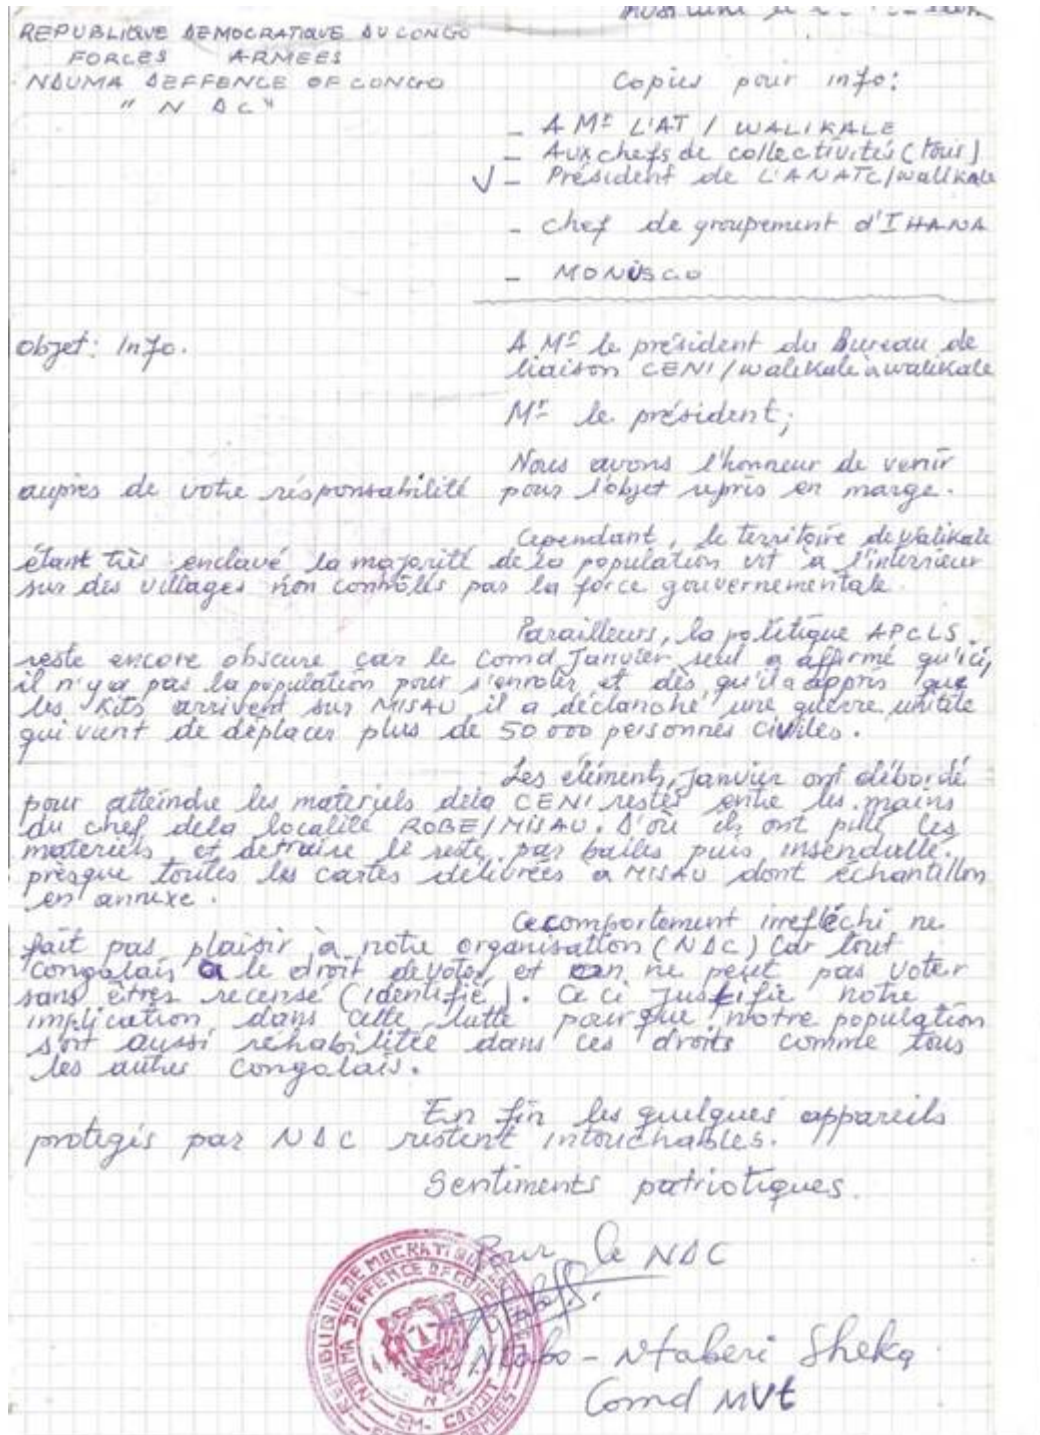 REPUBLIQUE DEMOCRATIQUE DU CONGO
FORCES ARMEES
NDUMA DEFFENCE OF CONGO
"NDC"
Copies pour info:
- A Mr L'AT / WALIKALE
- Aux chefs de collectivités (tous)
√ - Président de L'ANATC/walikale
- chef de groupement d'IHANA
- MONUSCO
Objet: Info.
A Mr le président du Bureau de
liaison CENI/walikale à walikale
Mr le président;
Nous avons l'honneur de venir
auprès de votre résponsabilité pour l'objet repris en marge.
Cependant, le territoire de walikale
étant très enclavé la majorité de la population vit à l'interieur
sur des villages non contrôlés par la force gouvernementale.
Parailleurs, la politique APCLS
reste encore obscure car le Comd Janvier seul a affirmé qu'ici,
il n'ya pas la population pour s'enroler et dès qu'il a appris que
les Kits arrivent sur MISAU il a déclanché une guerre
qui vient de déplacer plus de 50 000 personnes civiles.
Les éléments Janvier ont débordé
pour atteindre les materiels dela CENI restés entre les mains
du chef dela localité ROBE/MISAU. D'où ils ont pillé les
materiels et détruire le reste par balles puis
presque toutes les cartes délivrées à MISAU dont échantillon
en annexe.
Cecomportement irrefléchi ne
fait pas plaisir à notre organisation (NDC) Car tout
congolais a le droit devoter et on ne peut pas voter
sans êtres recensé (identifié). Ce ci justifie notre
implication dans cette lutte pour que notre population
soit aussi rehabilitée dans ces droits comme tous
les autres congolais.
En fin les quelques appareils
protegés par NDC restent intouchables.
Sentiments patriotiques.
Pour le NDC
Ntabo-Ntaberi Sheka
Comd MVt
REPUBLIQUE DEMOCRATIQUE
NDUMA DEFFENCE OF CONGO